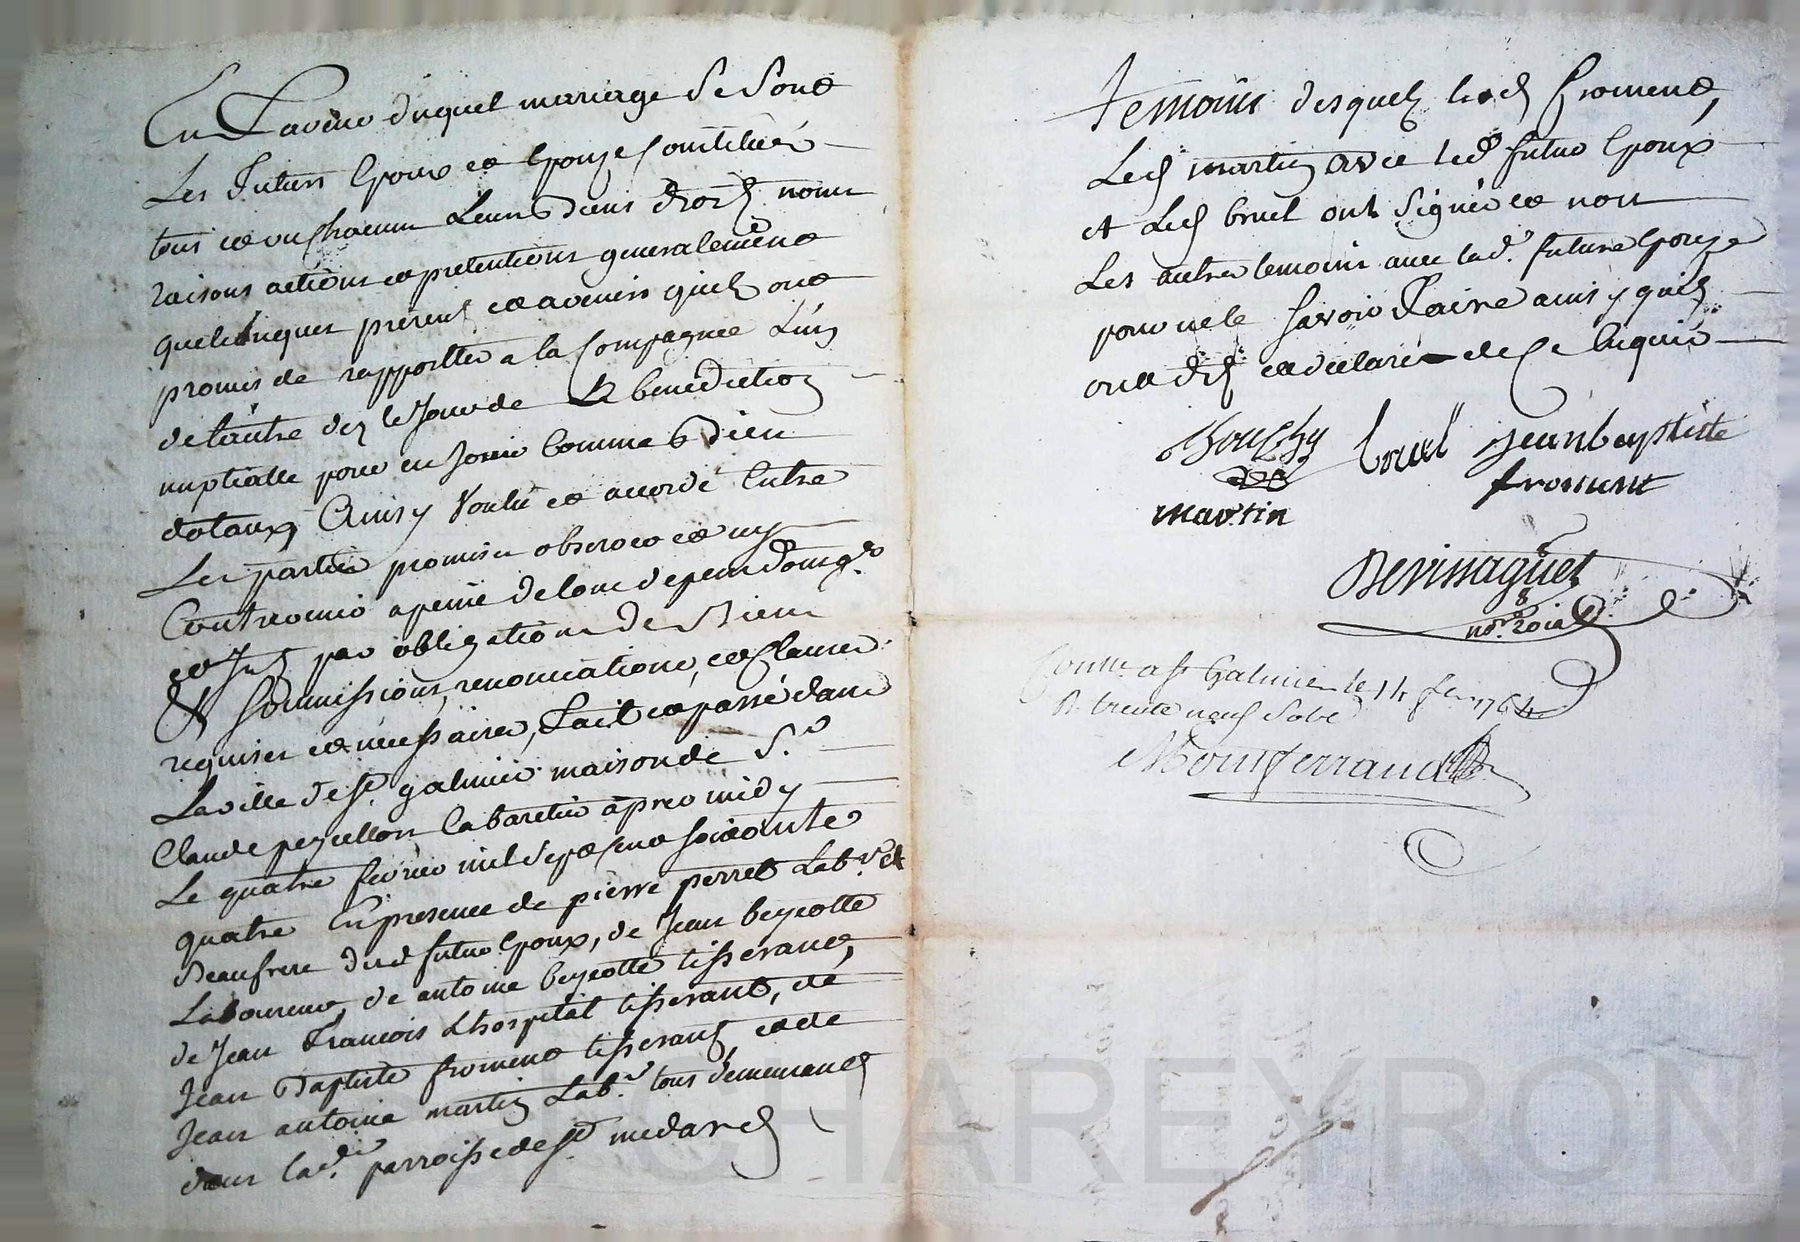 En faveur duquel mariage se sont
Les futurs Epoux et Epouze Constitués
tous et un Chacun Leurs biens droits noms
raisons actions et pretentions generalement
quelconques present et avenirs quils ont
promis de rapporter a la Compagnie L'un
de l'autre des le Jour de la benediction
nuptialle pour en Jouir Comme biens
dotaux, Ainsy Voulu et accordé Entre
Les parties promis observer et ny
Contrevenir a peine de tous depens domges
et Ints par obligations de Biens
& soumissions, renonciations, et Clauses
requises et necessaires, fait et passé dans
La ville de St galmier maison de Sr
Claude peycellon Cabaretier apres midy
Le quatre fevrier mil sept Cent soixante
quatre En presence de pierre perret Labr et
Beaufrere dud futur Epoux, de Jean beycotte
Laboureur, de antoine beycotte tisserant,
de Jean francois Lhospital tisserant, de
Jean Baptiste froment tisserant, et de
Jean antoine martin Labr tous demeurants
dans lade parroisse de St medard
temoins desquels led froment,
Led martin avec led futur Epoux
et Led bruel ont signé et non
Les autres temoins avec lad. future Epouze
pour ne le savoir faire ainsy quils
ont dit et declaré de ce Enquis
bruel Jeanbaptiste
froment
martin
not. roial
Contr. a St Galmier le 14 fev 1764
R. trente neuf sols
Montferrand
CHAREYRON